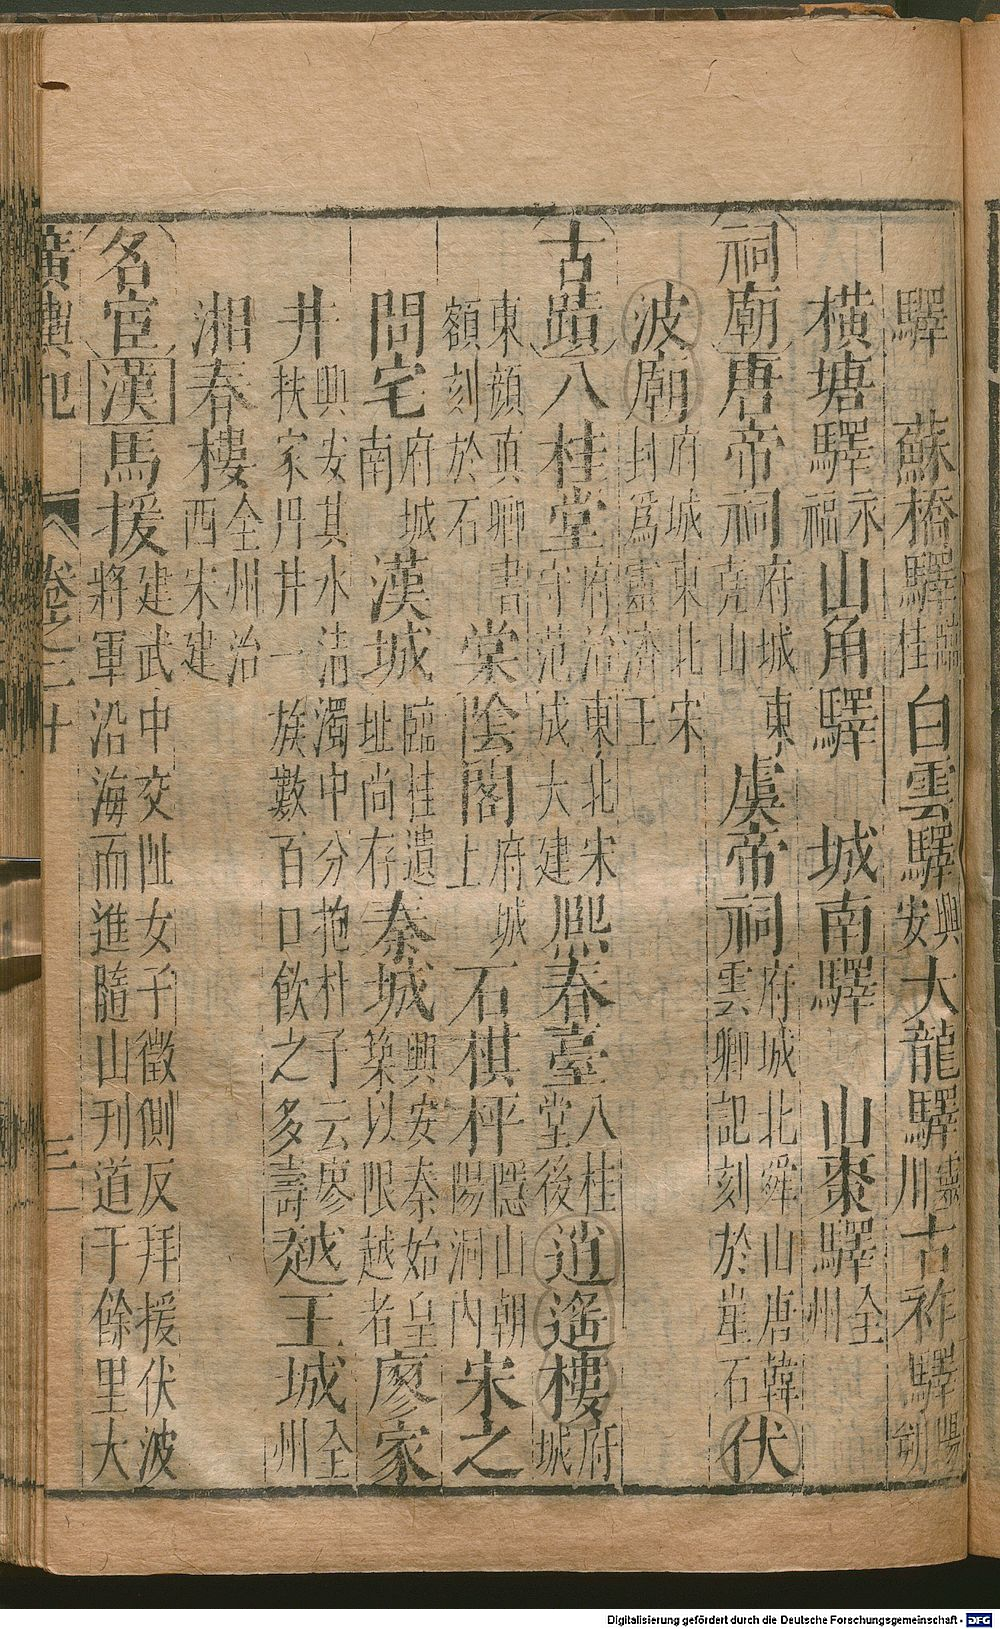 驛 蘇橋驛臨桂白雲驛興安大龍驛靈川古祚驛陽朔
橫塘驛永福山角驛 城南驛 山棗驛全州
祠廟唐帝祠府城東堯山虞帝祠府城北舜山唐韓雲卿記刻於崖石伏
波廟府城東北宋封爲靈濟王
古蹟八桂堂府治東北宋守范成大建熙春臺八桂堂後逍遙樓府城
東顔眞卿書額刻於石棠陰閣府城上石棋枰隱山朝陽洞内宋之
問宅府城南漢城臨桂遺址尚存秦城興安秦始皇築以限越者廖家
井興安其水清濁中分抱朴子云廖扶家丹井一族數百口飲之多壽越王城全州
湘春樓全州治西宋建
名宦漢馬援建武中交阯女子徵側反拜援伏波將軍沿海而進隨山刊道于餘里大
廣輿記 卷之二十 三一
Digitalisierung gefördert durch die Deutsche Forschungsgemeinschaft - DFG